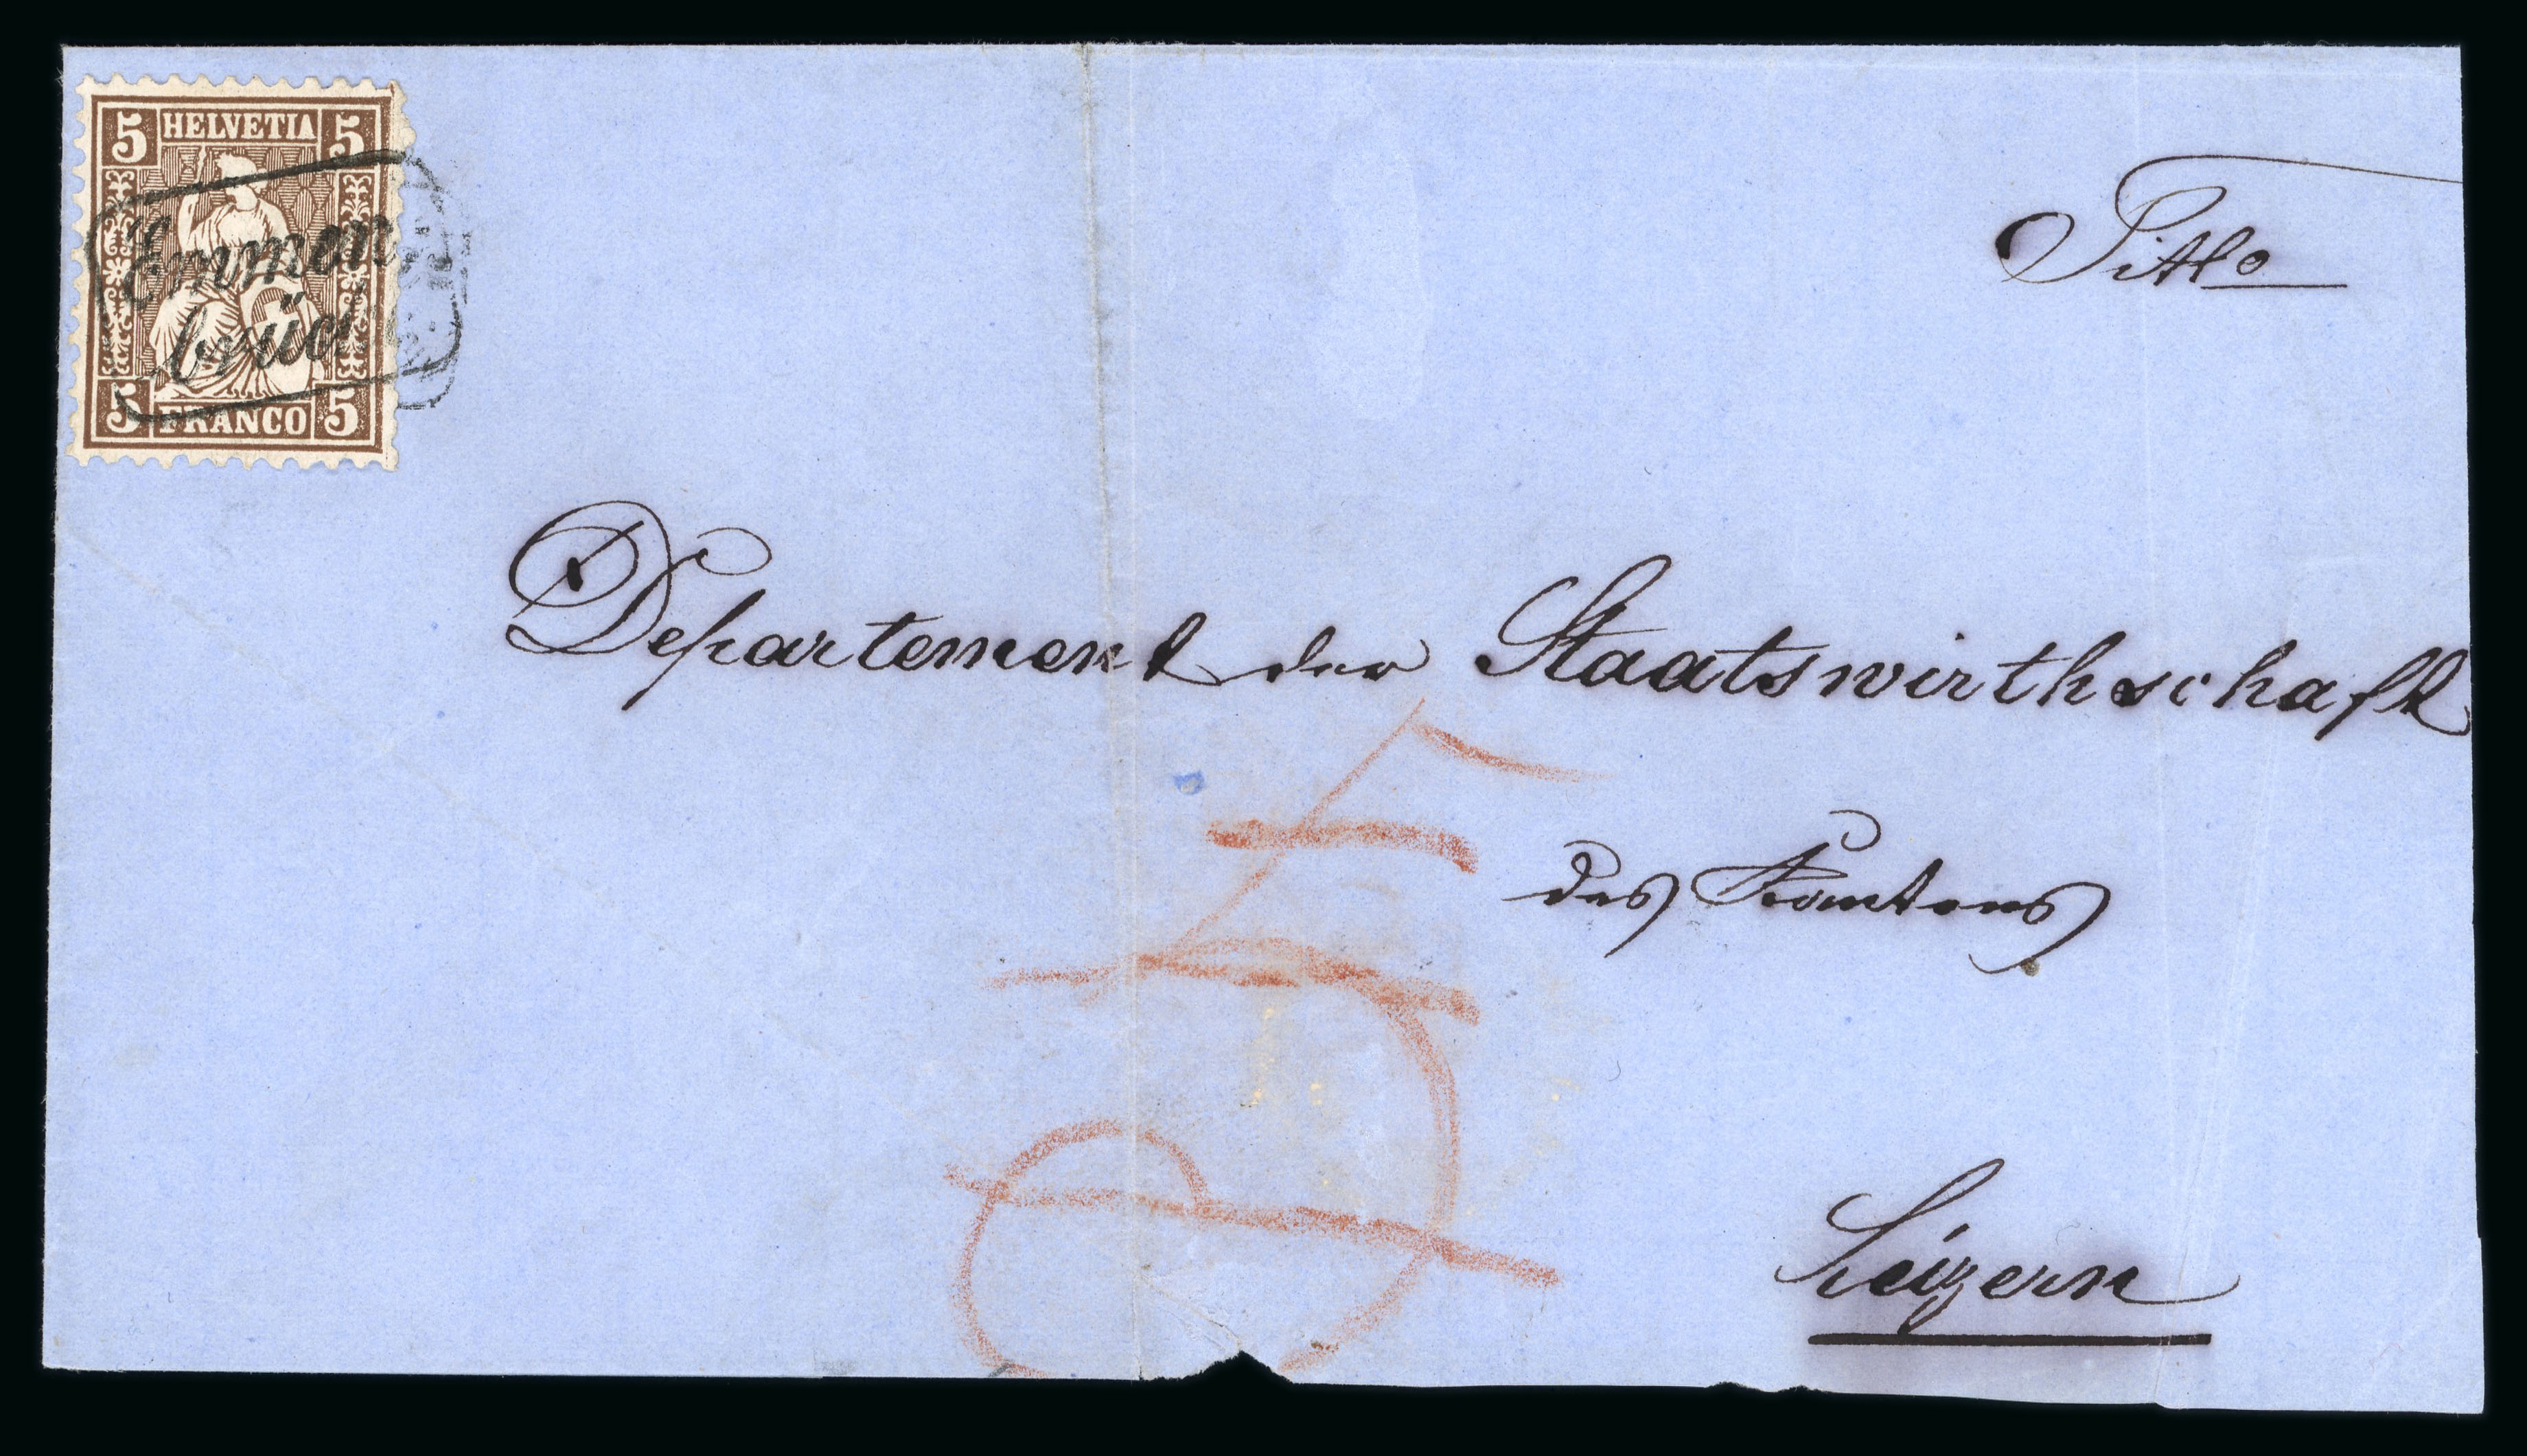 5 HELVETIA 5
Emmen,
brück
5 FRANCO 5
Titlo
Departement der Staatswirthschaft
des Kantons
Luzern